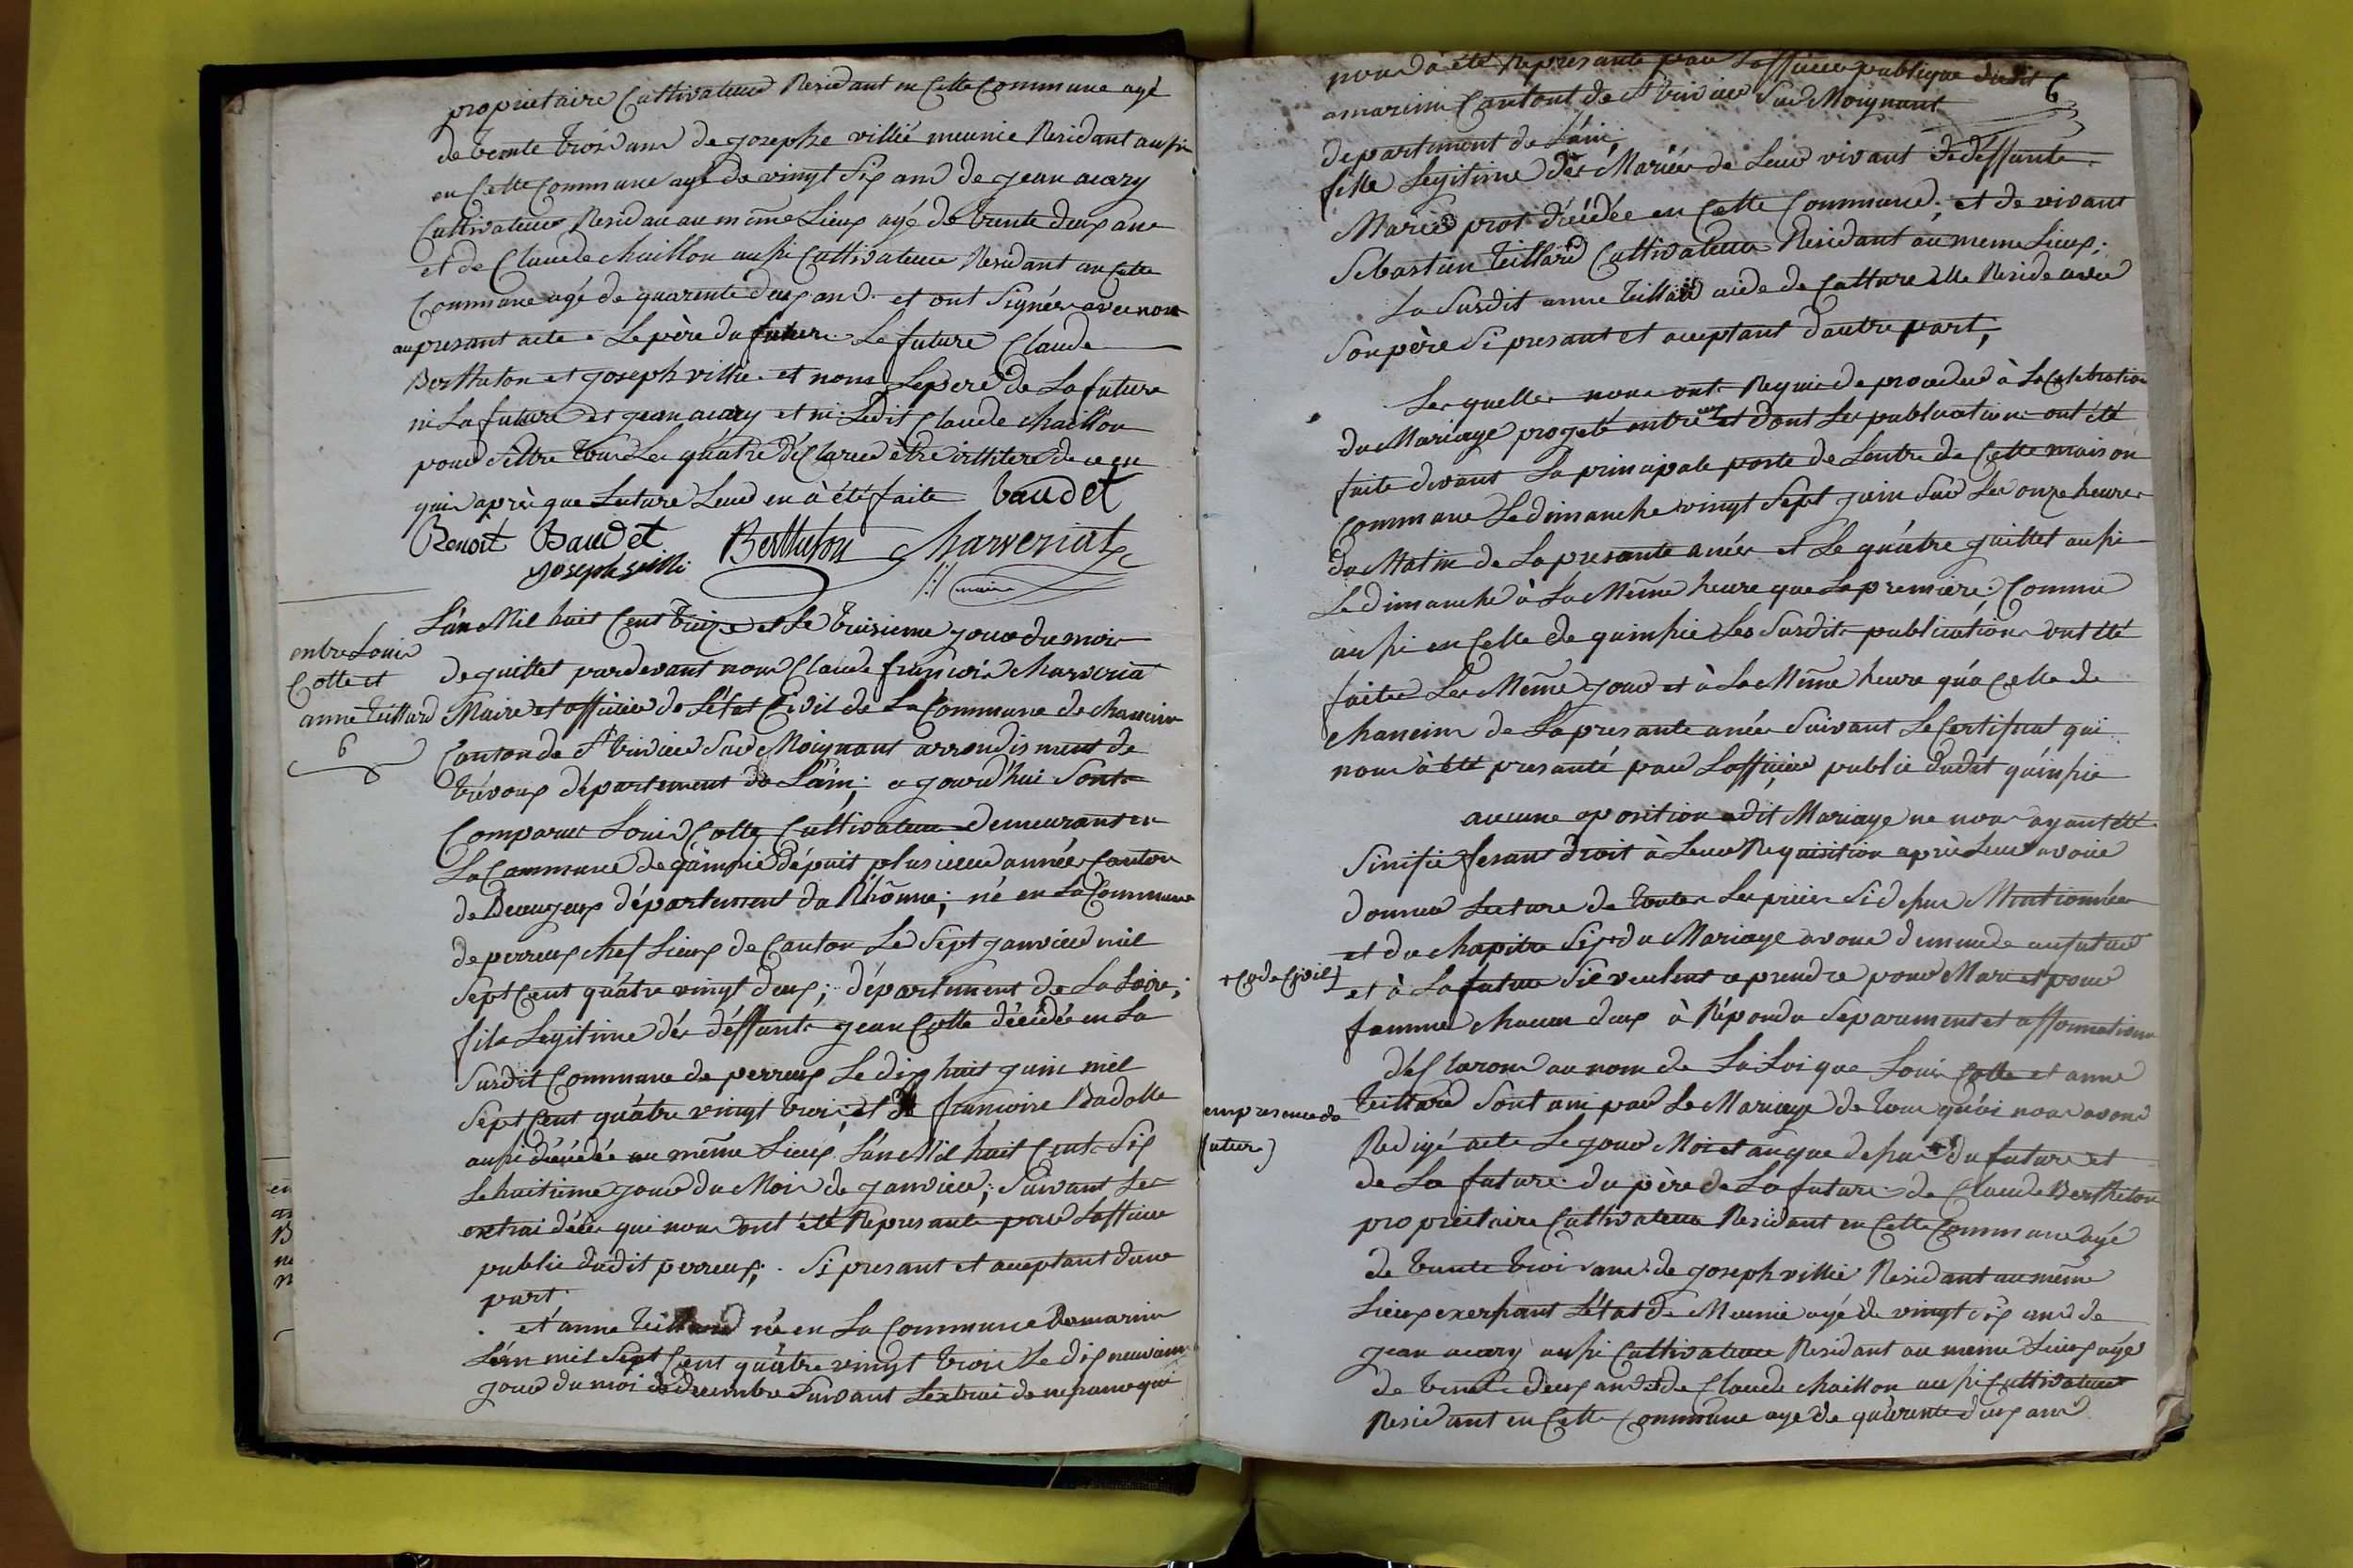 proprietaire Cultivateur Residant en Cette Commune agé
de trente trois ans de josephe villié meunié Residant aussi
en Cette Commune agé de vingt six ans de jean acary
Cultivateur Residan au même Lieux agé de trente deux ans
et de Claude chaillon aussi Cultivateur Residant en Cette
Commune agé de quarente deux ans. et ont Signées avec nous
au presant acte. Le père du future Le future Claude
Bertheton et joseph villié. et nons Le pere de La future
ni La future et jean acary et ni Ledit Claude chaillon
pour Tous Les quâtre déClarée être de ce en
quis après que Lecture Leur en à été faite baudet
Benoit Baudet Bertheton Charveriat
joseph villi maire
L'an Mil huit Cent treize et Le troisieme jour du mois
de juillet pardevant nous Claude françois charveriat
Maire et officier de L'état Civil de La Commune de chaneins
Canton de St trivier Sur Moignans arrondisment de
trévoux département de L'ain; ajourd'hui Sonts
Comparus Louis Colle Cultivateur Demeurant en
La Commune de quinsié dépuit plusieur années Canton
de Beaujeux département du Rhônne; né en La Commune
de perreux chef Lieux de Canton Le Sept janvier mil
Sept Cent quâtre vingt deux; département de La Loire;
fils Legitime dés déffunts jean Colle décédé en La
Susdit Commune de perreux Le dix huit juin mil
Sept Cent quâtre vingt trois, et de françoise Badolle
aussi décédée au même Lieux L'an Mil huit Cents Six
Le huitième jour du Mois de janvier; Suivant Les
extrai décès qui nous ont été Represanté par Lofficier
public dudit perreux; Si presant et aceptant dune
part.
et anne teillard née en La Commune Damarin
L'an mil Sept Cent quâtre vingt trois Le dix neuvième
jour du moi de decembre Suivant Lextrai de nessance qui
entre Louis
Colle et
anne teillard
6
nous à été Represanté par Lofficier publique dudit
6
amarin Cantont de St trivier Sur Moignans
departement de L'ain;
fille Legitime dès Mariés de Leur vivant de déffunte
Marie prost décédée en Cette Commune; et de vivant
Sebastien teillard Cultivateur Residant au meme Lieux;
La Susdit anne teillard aide de Culture elle Reside avec
Son père Si presant et aceptant dautre part;
Les quelles nous ont Requis de proceder à La Celebration
du Mariage projeté entre eux et dont Les publications ont été
faite devant La principale porte de Lentre de Cette maison
Commune Le dimanche vingt Sept juin Sur Les onze heures
du Matin de La presante année et Le quâtre juillet aussi
Le dimanche à La Même heure que La premiere: Comme
aussi en Celle de quinsié Les Susdits publications ont été
faites Les Même jour et à La Même heure qu'a Celle de
chaneins de La presante année Suivant Le Certificat qui
nous à été presanté par Lofficier public dudit quinsié
aucune oposition adit Mariage ne nous ayant été
Sinifié fesant droit à Leur Requisition après Leur avoir
donner Lecture de toutes Les pièces Si desus Mentionnées
et du chapitre Six du Mariage avons demmende au futur
+ Code Civil)
et à La future Sil veulent ce prendre pour Mari et pour
femme chacun deux à Répondu Separement et affirmativem
déClarons au nom de La Loi que Louis Colle et anne
teillard Sont uni par Le Mariage de tous quoi nous avons
empresence de
future)
Redigé acte Le jour Moi et an que desus du future et
de La future. du père de La future de Claude Bertheton
proprietaire Cultivateur Residant en Cette Commune agé
de trente trois ans. de joseph villié Residant au même
Lieux exersant L'état de Meunié agé de vingt six ans de
jean acary aussi Cultivateur Residant au meme Lieux agé
de trente deux ans et de Claude chaillon aussi Cultivateur
Residant en Cette Commune agé de quarente deux ans